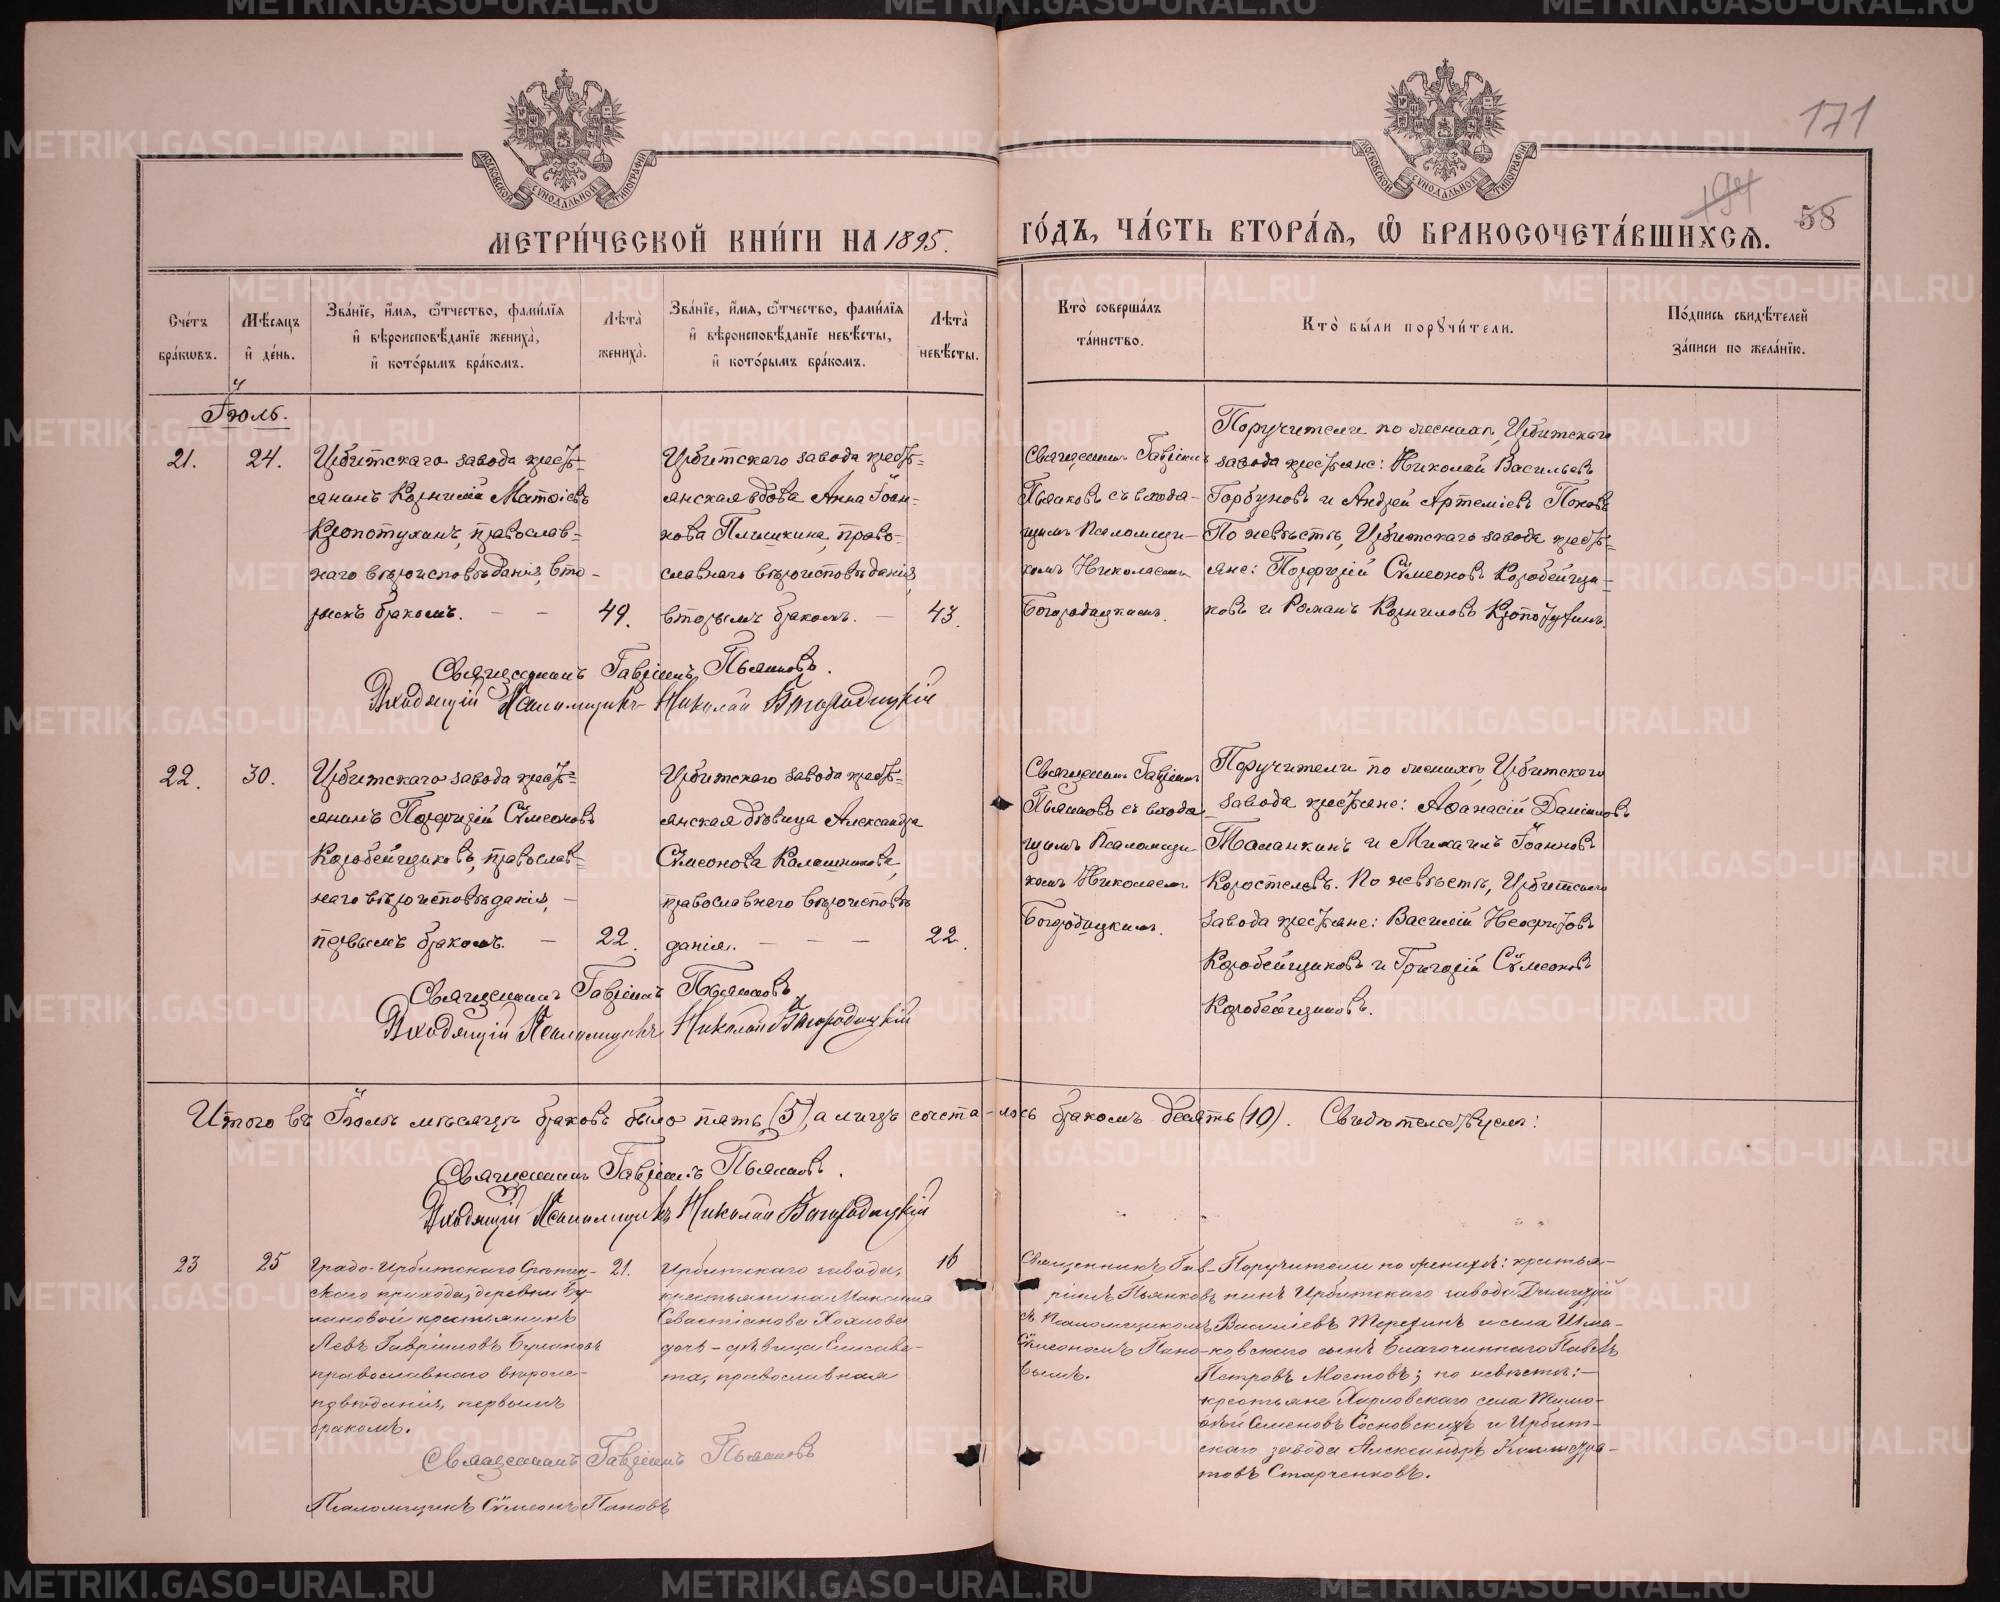 171
194
58
МОСКОВСКОЙ СѴНОДАЛЬНОЙ ТИПОГРАФІИ
МОСКОВСКОЙ СѴНОДАЛЬНОЙ ТИПОГРАФІИ
МЕТРИ́ЧЕСКОЙ КНИ́ГИ НА 1895.
ГО́ДЪ, ЧА́СТЬ ВТОРА́Ѧ, Ѡ҆ БРАКОСОЧЕТА́ВШИХСѦ.
Сче́тъ бра́кѡвъ.
Мѣ́сѧцъ и҆ де́нь.
Зва́нїе, и҆́мѧ, ѻ҆́тчество, фами́лїѧ и҆ вѣроисповѣ́данїе жениха̀, и҆ кото́рымъ бра́комъ.
Лѣта̀ жениха̀.
Зва́нїе, и҆́мѧ, ѻ҆́тчество, фами́лїѧ и҆ вѣроисповѣ́данїе невѣ́сты, и҆ кото́рымъ бра́комъ.
Лѣта̀ невѣ́сты.
Кто̀ соверша́лъ та́инство.
Кто̀ бы́ли порꙋчи́тели.
По́дпись свидѣ́телей за́писи по жела́нїю.
Іюль.
21.
24.
Ирбитскаго завода кресть-
янинъ Корнилій Матѳіевъ
Кропотухинъ, православ-
наго вѣроисповѣданія, вто-
рымъ бракомъ.
49.
Ирбитскаго завода кресть-
янская вдова Анна Іоан-
нова Плишкина, право-
славнаго вѣроисповѣданія,
вторымъ бракомъ.
43.
Священникъ Гавріилъ
Пьянковъ съ входя-
щимъ Псаломщи-
комъ Николаемъ
Богородицкимъ.
Поручители по женихѣ, Ирбитскаго
завода крестьяне: Николай Васильевъ
Горбуновъ и Андрей Артеміевъ Поповъ
По невѣстѣ, Ирбитскаго завода кресть-
яне: Порфирій Сѵмеоновъ Коробейщи-
ковъ и Романъ Корниловъ Кропотухинъ.
Священникъ Гавріилъ Пьянковъ.
Входящій Псаломщикъ Николай Богородицкій
22.
30.
Ирбитскаго завода кресть-
янинъ Порфирій Сѵмеоновъ
Коробейщиковъ, православ-
наго вѣроисповѣданія,
первымъ бракомъ.
22.
Ирбитскаго завода кресть-
янская дѣвица Александра
Сѵмеонова Калашникова,
православнаго вѣроисповѣ
данія.
22.
Священникъ Гавріилъ
Пьянковъ съ входя
щимъ Псаломщи
комъ Николаемъ
Богородицкимъ.
Поручители по женихѣ, Ирбитскаго
завода крестьяне: Аѳанасій Даніиловъ
Таланкинъ и Михаилъ Іоанновъ
Коростелевъ. По невѣстѣ, Ирбитскаго
завода крестьяне: Василій Неофитовъ
Коробейщиковъ и Григорій Сѵмеоновъ
Коробейщиковъ.
Священникъ Гавріилъ Пьянковъ
Входящій Псаломщикъ Николай Богородицкій
Итого въ Іюлѣ мѣсяцѣ браковъ было пять (5), а лицъ сочета-лось бракомъ десять (10). Свидѣтельствуемъ:
Священникъ Гавріилъ Пьянковъ.
Входящій Псаломщикъ Николай Богородицкій
23
25
Градо-Ирбитскаго Срѣтен-
скаго прихода, деревни Бу
лановой крестьянинъ
Левъ Гавріиловъ Булановъ
православнаго вѣроис-
повѣданія, первымъ
бракомъ.
21.
Ирбитскаго завода,
крестьянина Максима
Севастіанова Хохлова
дочь - дѣвица Елисаве-
та, православная
16
Священникъ Гав-
ріилъ Пьянковъ
съ Псаломщикомъ
Сѵмеономъ Попо-
вымъ.
Поручители по женихѣ: крестья-
нинъ Ирбитскаго завода Димитрій
Василіевъ Терехинъ и села Шма-
ковскаго сынъ Благочиннаго Павелъ
Петровъ Мостовъ; по невѣстѣ:
крестьяне Харловскаго села Тимо-
ѳей Семеновъ Сосновскихъ и Ирбит-
скаго завода Александръ
Старченковъ.
Священникъ Гавріилъ Пьянковъ
Псаломщикъ Сѵмеонъ Поповъ
METRIKI.GASO-URAL.RU